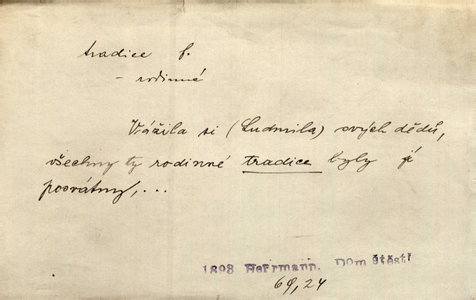 tradice f.
– rodinné
Vážila si (Ludmila) svých dědů,
všechny ty rodinné tradice byly jí
posvátny,...
1898 Herrmann. Dům štěstí
69,24